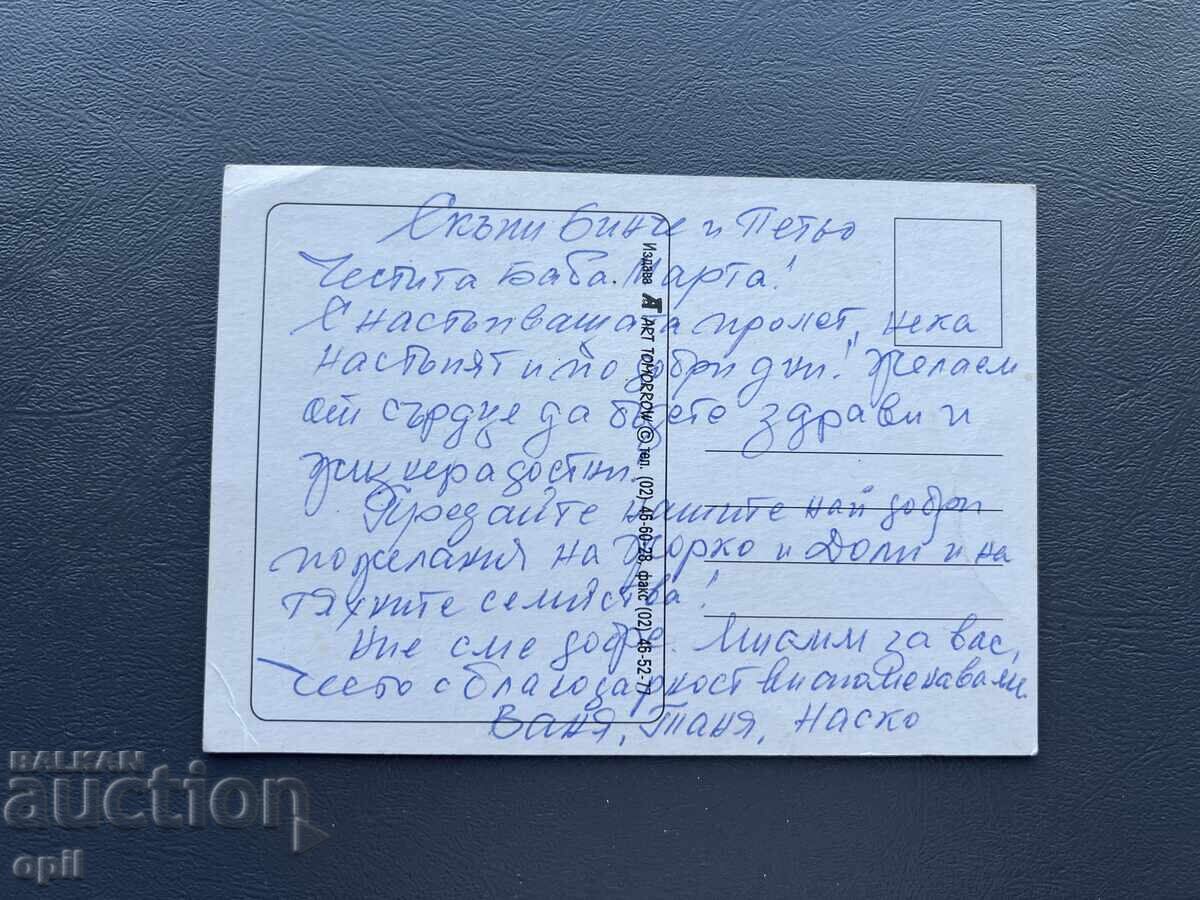 Скъпи Бинче и Петьо
Честита Баба Марта!
С настъпващата пролет, нека
настъпят и по добри дни! Желаем
от сърдце да бъдете здрави и
жизнерадостни.
Предайте нашите най добри
пожелания на Жорко и Доли и на
тяхните семейства!
Ние сме добре. Мислим за вас,
често с благодарност ви споменаваме.
Ваня, Таня, Наско
Издава ART TOMORROW © тел. (02) 46-60-28, факс (02) 46-52-77
BALKAN
auction
opil